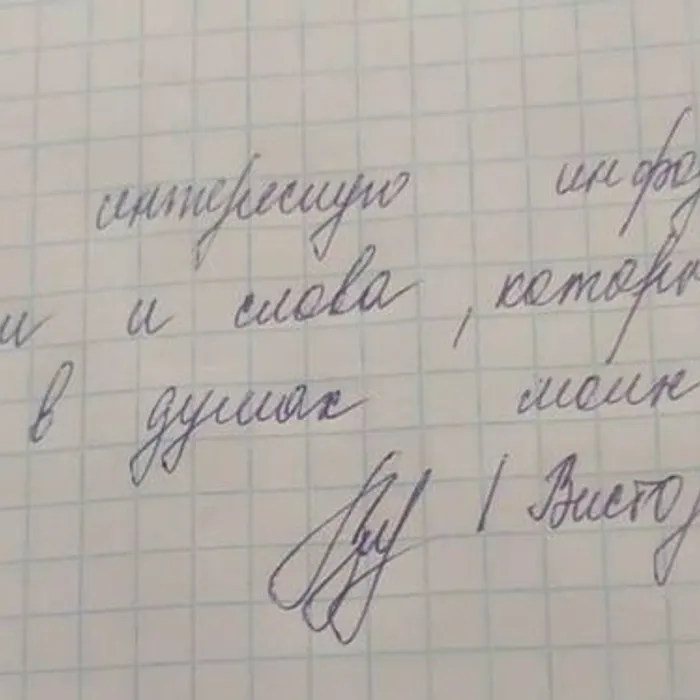 интересную инфо
и и слова, котор
в душах моих
/ Виктор